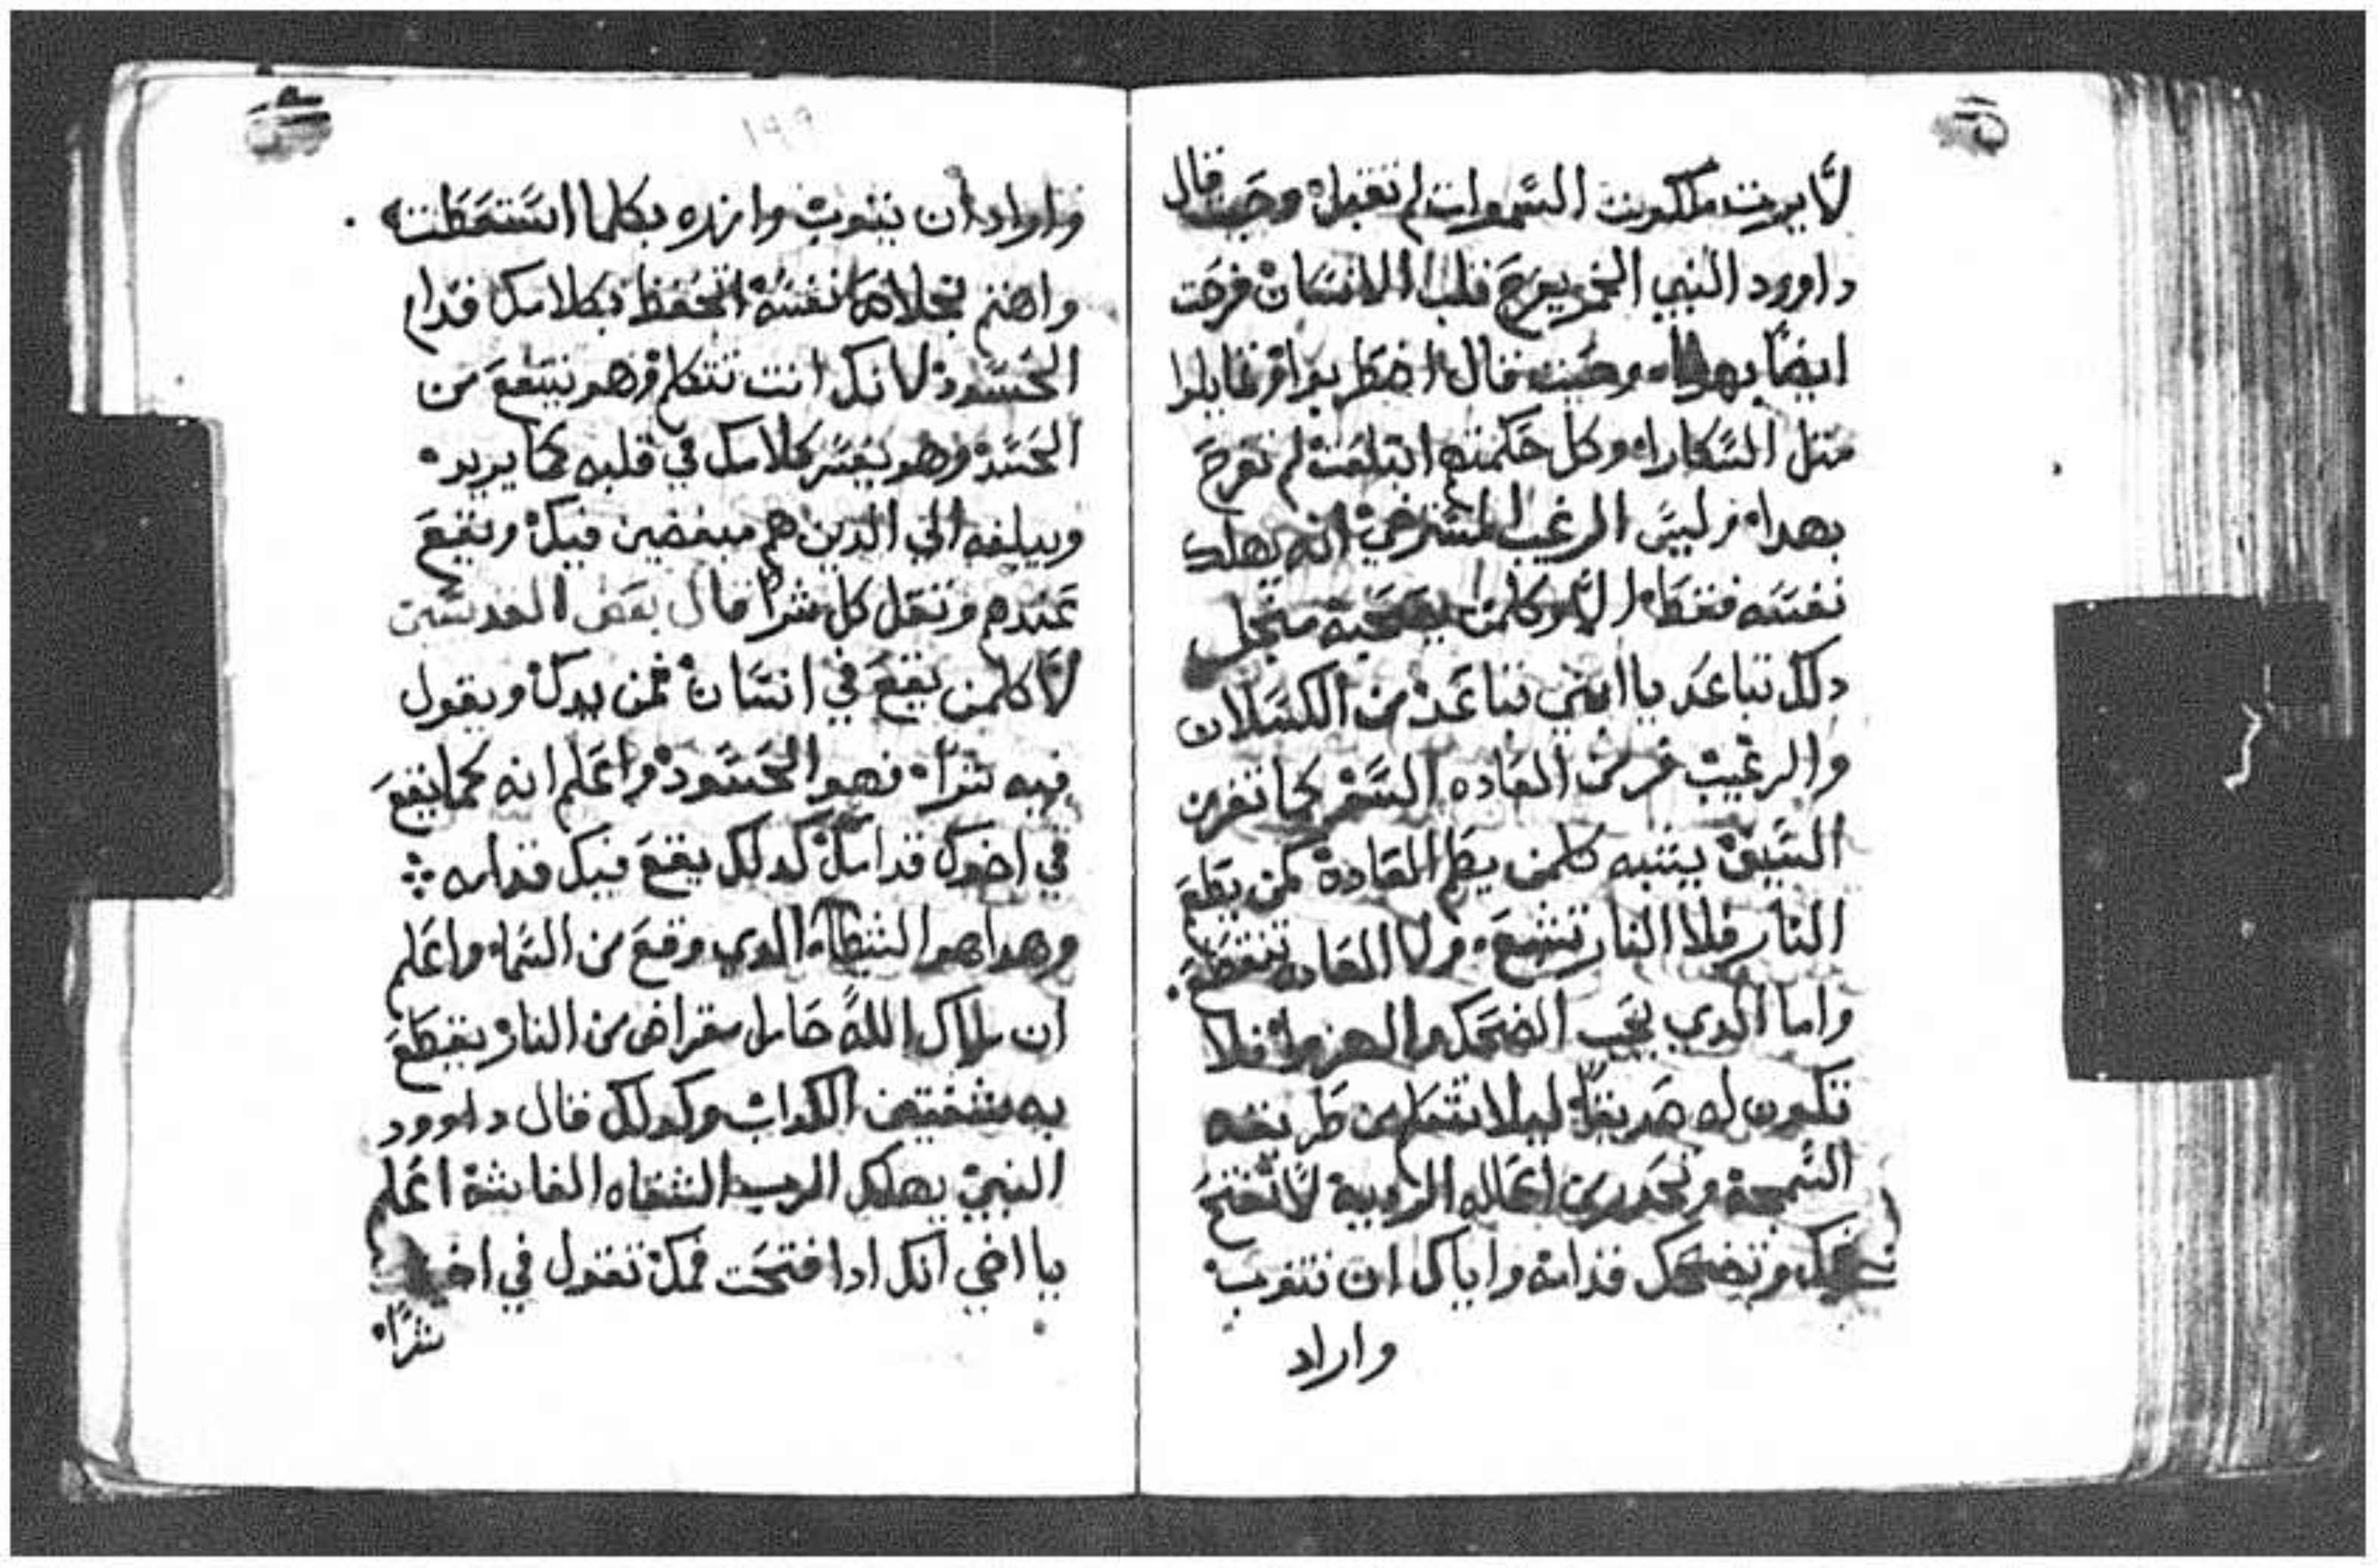 لا يرت ملكوت السموات لم تقبل وحيت قال
داوود النبي الخمر يفرح قلب الانسان فرحت
ايضا بهدا وحيت قال اضطربوا وتمايلوا
متل السكارا وكل حكمتهم ابتلعت لم تفرح
بهدا وليس الرغيب الشره انه يهلك
نفسه فقط الا وكلمن يصحبه متجل
دلك تباعد يا ابني تباعد من الكسلان
والرغيب غر من العاده السو كما تفر من
السيف ينتبه كلمن يطلم العادة كمن يطلع
النار فلا النار تشبع ولا العاده تنقطع
واما الدي يحب الضحك والهزوا فلا
تكون له صديقا ليلا تتعلم من طريقته
السمجة وتحدر من اعماله الردية لا تفتح
فمك وتضحك قدامه واياك ان تتوب
واراد
١٩٩
واراد ان يتوب وازده بكلما استعطته
واهتم بخلاص نفسه اتحفظ بكلامك قدام
الحسود لانك انت تتكلم وهو يتقع من
الحسد وهو يفسر كلامك في قلبه كما يريد
ويبلغه الي الدين هم مبغضين فيك ويقع
عندهم وتقل كل شرا قال بعض القديسين
لا كلمن يقع في انسان فمن يدك ويقول
فيه شرا فهو الحسود واعلم انه كما يقع
في اخوك قدامك كدلك يقع فيك قدامه
وهدا هو الشيطان الدي وقع من السما واعلم
ان ملاك الله حامل مقراض من النار يقطع
به شفتين الكداب وكدلك قال داوود
النبي يهلك الرب الشفاه الغاشة اعلم
يا اخي انك ادا فتحت فمك تقول في
شرا